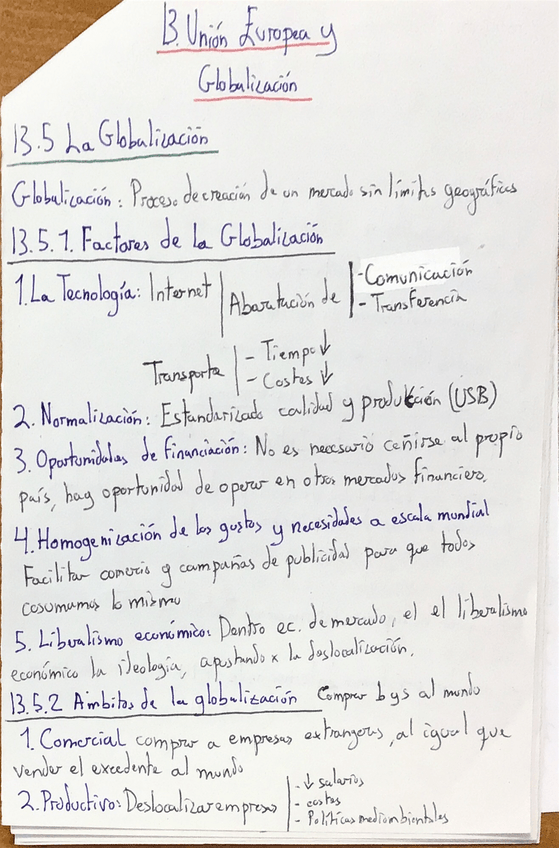 13. Unión Europea y
Globalización
13.5 La Globalización
Globalización: Proceso de creación de un mercado sin límites geográficos
13.5.1. Factores de la Globalización
1. La Tecnología: Internet | Abaratación de | - Comunicación
- Transferencia
Transporte | - Tiempo ↓
- Costes ↓
2. Normalización: Estandarizado calidad y produkción (USB)
3. Oportunidades de financiación: No es necesario ceñirse al propio
país, hay oportunidad de operar en otros mercados financiero.
4. Homogenización de los gustos y necesidades a escala mundial
Facilitar comercio y campañas de publicidad para que todos
cosumamos lo mismo
5. Liberalismo económico: Dentro ec. de mercado, el el liberalismo
económico la ideología, apostando x la deslocalización.
13.5.2 Ámbitos de la globalización Comprar b y s al mundo
1. Comercial comprar a empresas extrangeras, al igual que
vender el excedente al mundo
2. Productivo: Deslocalizar empresas | - ↓ salarios
- costes
- Políticas mediombientales